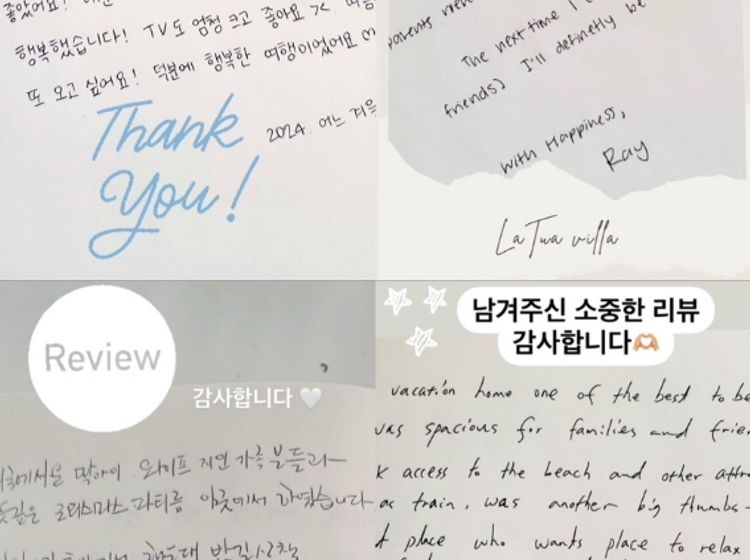 좋았어요!
행복했습니다! TV도 엄청 크고 좋아요 >< 여행
또 오고 싶어요! 덕분에 행복한 여행이었어요 ♡
2024. 어느 겨울
Thank
You!
parents
The next time I
friends) I'll definetly be
with Happiness,
Ray
LaTua villa
Review
감사합니다 🤍
남겨주신 소중한 리뷰
감사합니다🫶🏻
에서온 와이프 지연 가족분들과
크리스마스 파티를 이곳에서 하였습니다
vacation home one of the best to be
was spacious for families and frie
access to the beach and other attra
train, was another big thumbs-
place who wants place to relax